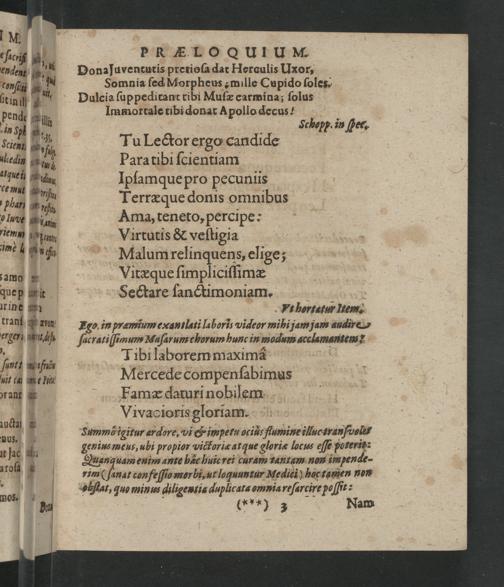 PRÆLOQUIUM.
Dona Juventutis pretiosa dat Herculis Uxor,
Somnia sed Morpheus, mille Cupido soles.
Dulcia suppeditant tibi Musæ carmina; solus
Immortale tibi donat Apollo decus!
Schopp. in spec.
Tu Lector ergo candide
Para tibi scientiam
Ipsamque pro pecuniis
Terræque donis omnibus
Ama, teneto, percipe:
Virtutis & vestigia
Malum relinquens, elige;
Vitæque simplicissimæ
Sectare sanctimoniam.
Vt hortatur Item.
Ego, in præmium exantlati laboris videor mihi jam jam audire
sacratissimum Musarum chorum hunc in modum acclamantem?
Tibi laborem maximâ
Mercede compensabimus
Famæ daturi nobilem
Vivacioris gloriam.
Summo igitur ardore, vi & impetu ocius flumine illuc transvolet
genius meus, ubi propior victoriæ atque gloriæ locus esse poterit:
Quanquam enim ante hâc huic rei curam tantam non impende-
rim (sanat confessio morbi, ut loquuntur Medici) hoc tamen non
obstat, quo minus diligentia duplicata omnia resarcire possit:
(***) 3 Nam